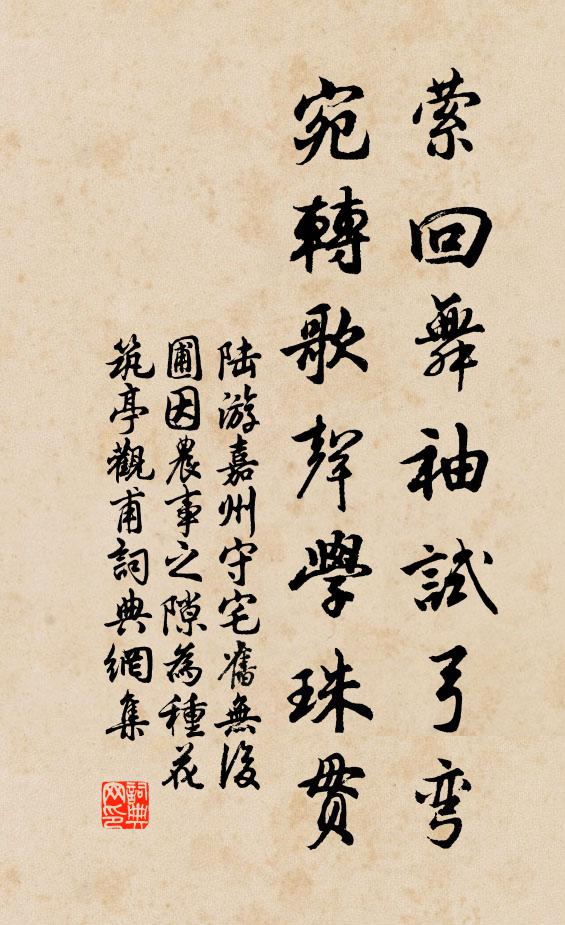 萦回舞袖試弓弯
宛轉歌聲學珠貫
陆游嘉州守宅舊無後
圃因農事之隙為種花
筑亭觀甫詞典網集
詞典网印